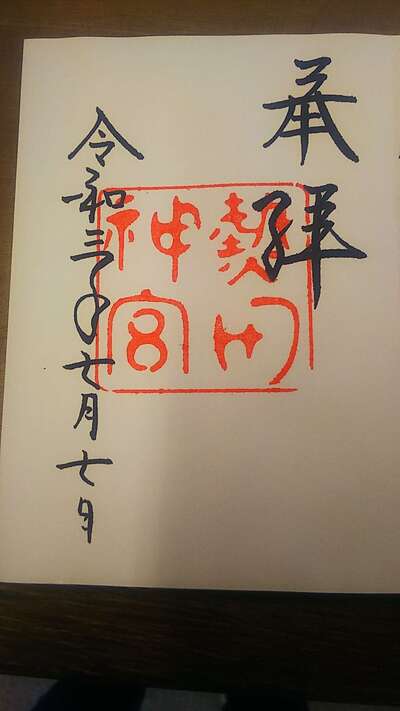 奉拝
熱田
神宮
令和三年七月七日